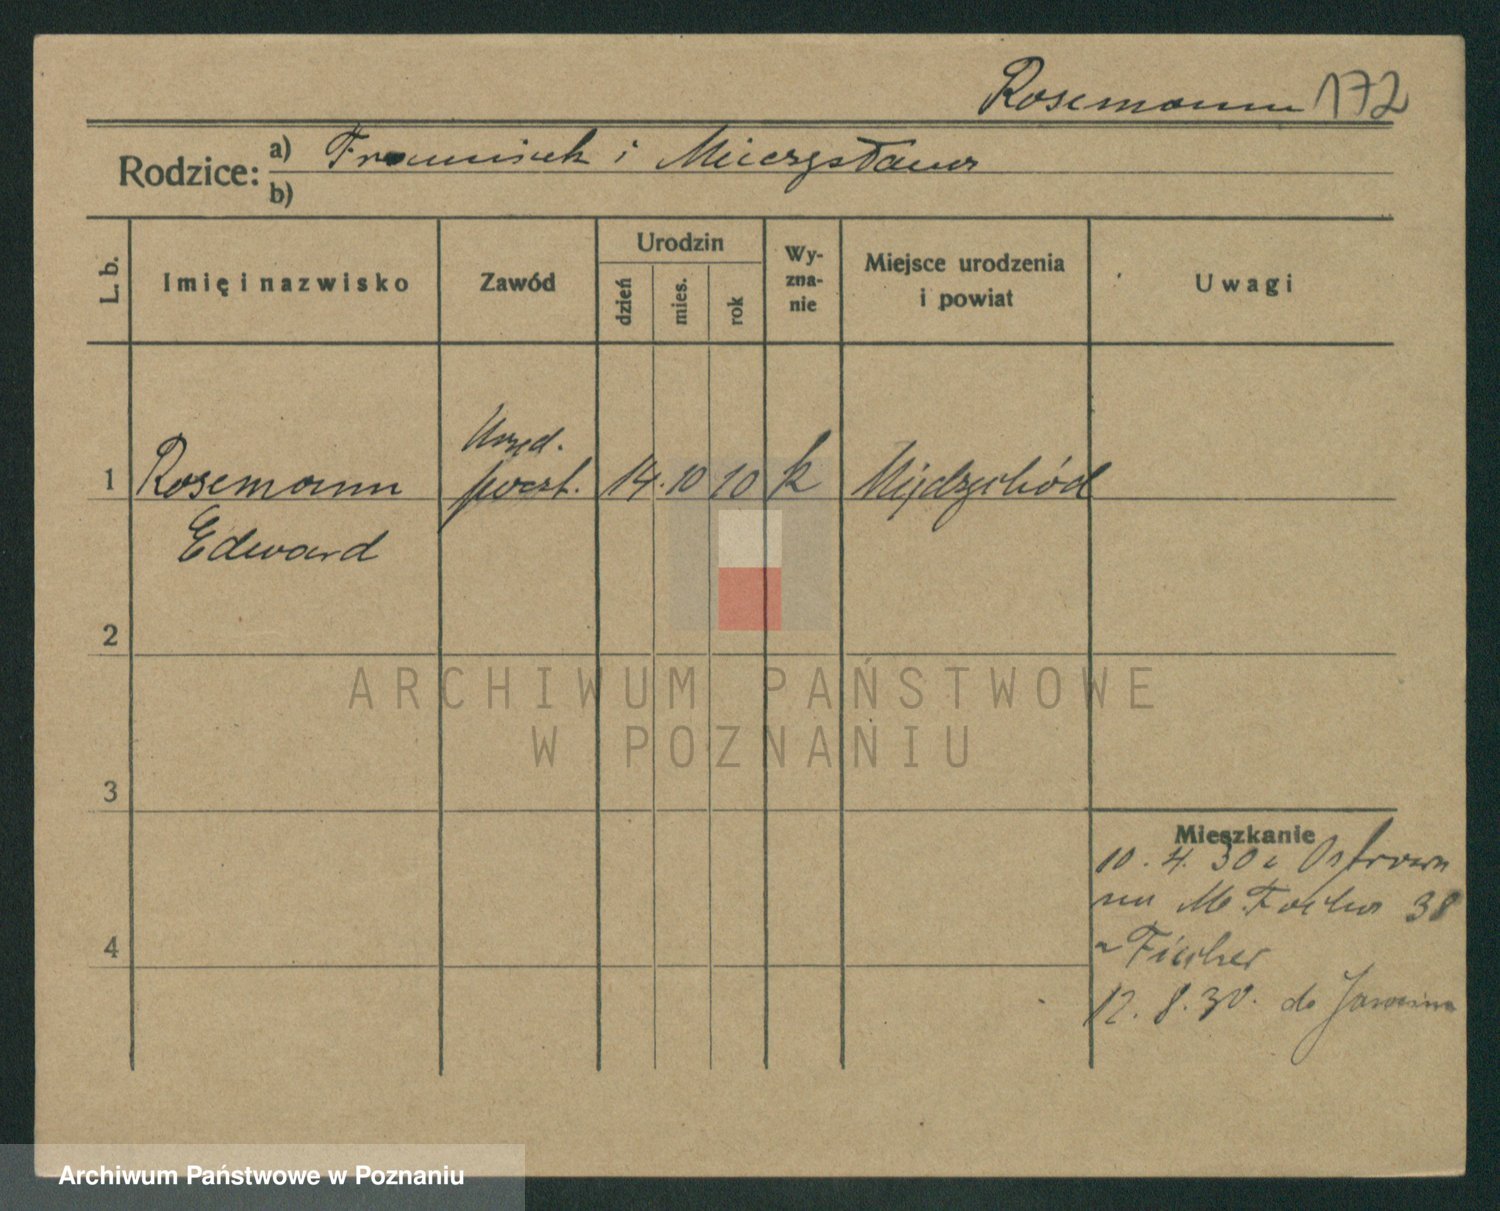 Rosemann 172
Rodzice: a) Franciszek i Mieczysława
b)
L. b.
Imię i nazwisko
Zawód
Urodzin
dzień
mies.
rok
Wy-
zna-
nie
Miejsce urodzenia
i powiat
Uwagi
Urzęd.
1 Rosemann poczt. 14. 10 10 k Międzychód
Edward
2
ARCHIWUM PAŃSTWOWE
W POZNANIU
3
Mieszkanie
10. 4. 30 z Ostrowa
M. Focha 38
4
Fischer
12. 8. 30. do
Archiwum Państwowe w Poznaniu